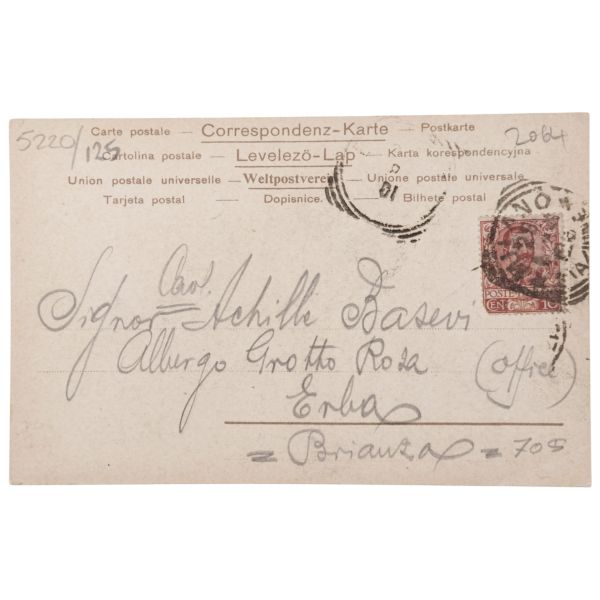 5220/125
2064
Carte postale — Correspondenz-Karte — Postkarte
Cartolina postale — Levelező-Lap — Karta korespondencyjna
Union postale universelle — Weltpostverein — Unione postale universale
Tarjeta postal — Dopisnice. — Bilhete postal
MILANO
10
POSTE
CENT 10
Cav.
Signor Achille Basevi
Albergo Grotto Rosa (office)
Erba
= Brianza = 705